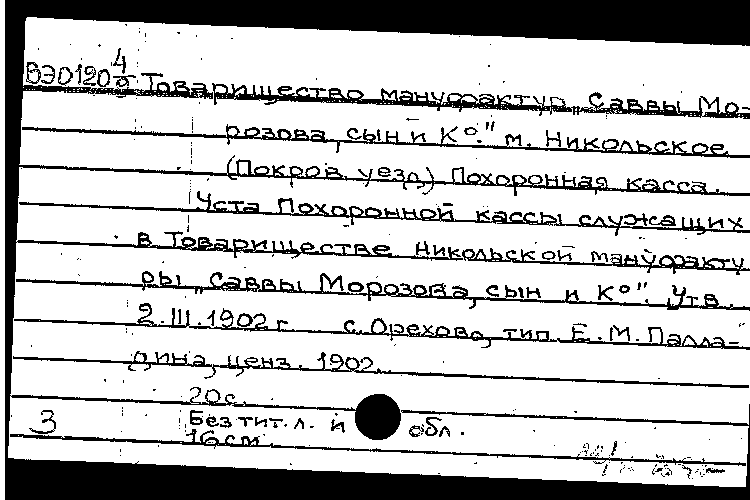 ВЭ0120 4/9 Товарищество мануфактур „Саввы Мо-
розова, сын и Ко." м. Никольское
(Покров. уезд.) Похоронная касса.
Уста Похоронной кассы служащих
в Товариществе Никольской мануфакту
ры „Саввы Морозова, сын и Ко". Утв.
2.III.1902 г. с. Орехово, тип. Е. М. Палла-
дина, ценз. 1902.
20 с.
Без тит. л. и обл.
3
16 см